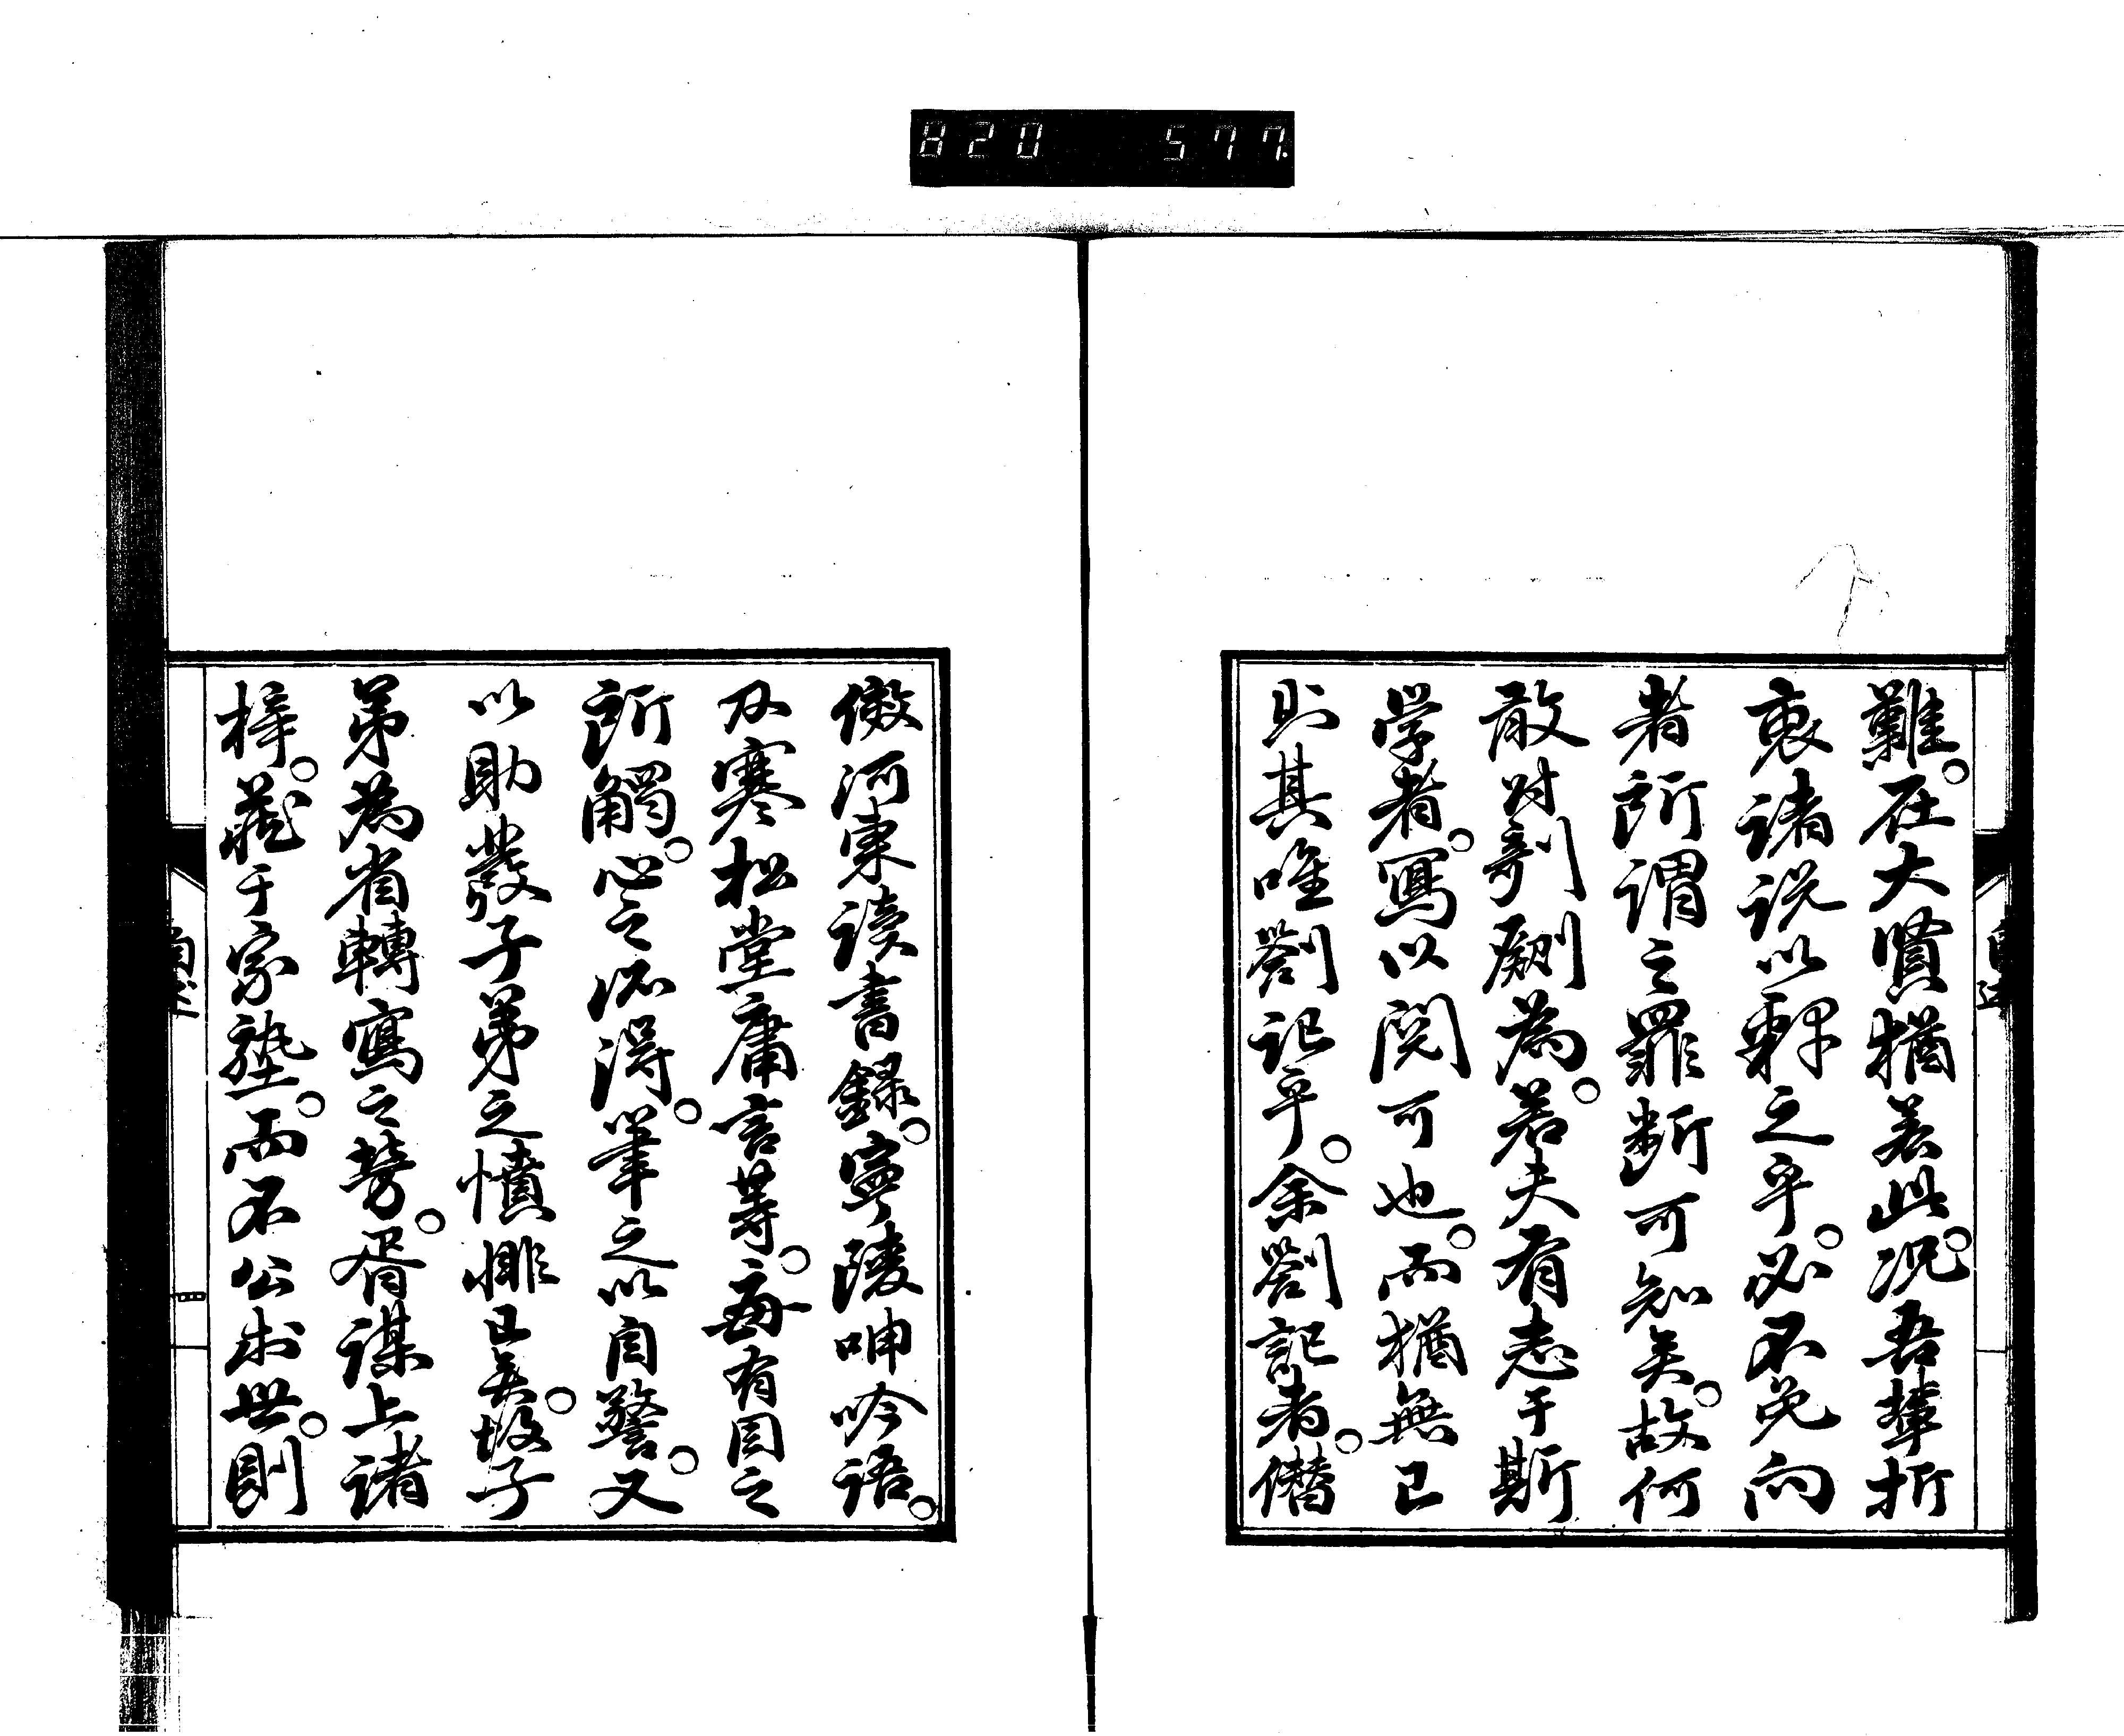 820 577
難。在大賢猶若此。況吾輩折
衷諸說以釋之乎。必不免向
者所謂之罪斷可知矣。故何
敢付剞劂為。若夫有志于斯
学者。寫以閱可也。而猶無已
則其唯劄記乎。余劄記者。僣
倣河東讀書錄。寧陵呻吟語。
及寒松堂庸言等。每有目之
所觸。心之所得。筆之以自警。又
以助發子弟之憤悱已矣。故子
弟為省轉寫之勞。胥謀上諸
梓。藏于家塾。而不公出世。則